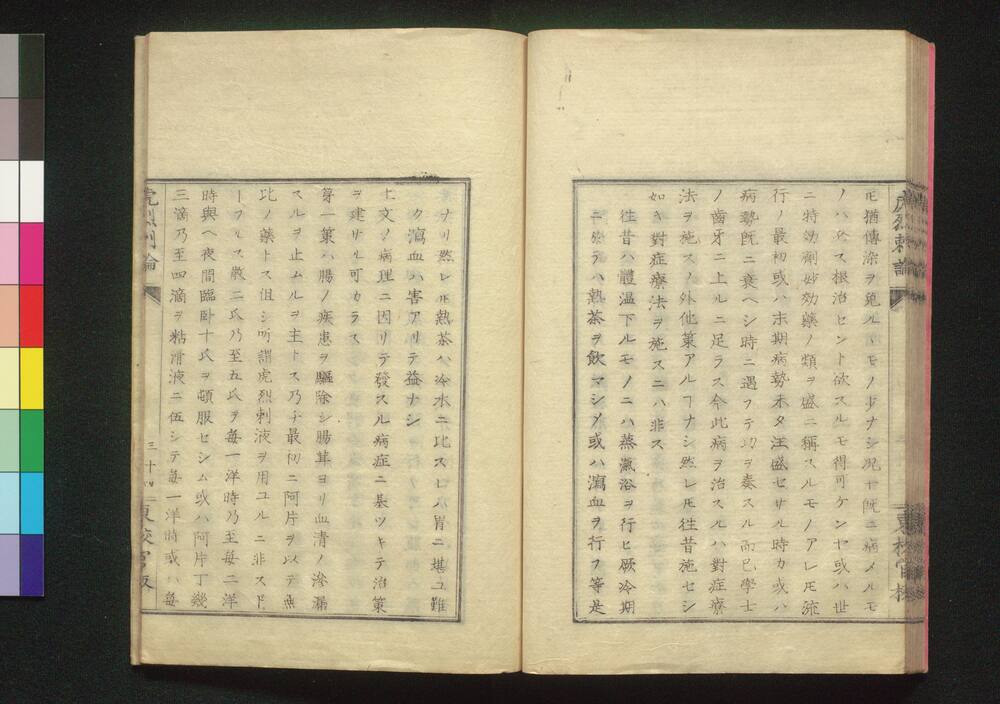 モ猶傳染ヲ免ルヽモノ少ナシ况ヤ既ニ病メルモ
ノハ必ス根治セント欲スルモ得可ケンヤ或ハ世
ニ特効劑妙効藥ノ類ヲ盛ニ稱スルモノアレ𪜈流
行ノ最初或ハ末期病勢未タ汪盛セサル時カ或ハ
病勢既ニ衰ヘシ時ニ遇フテ功ヲ奏スル而已學士
ノ齒牙ニ上ルニ足ラス今此病ヲ治スルハ對症療
法ヲ施スノ外他策アルヿナシ然レ𪜈徃昔施セシ
如キ對症療法ヲ施スニハ非ス
徃昔ハ體温下ルモノニハ蒸瀛浴ヲ行ヒ厥冷期
ニ於テハ熱茶ヲ飲マシメ或ハ瀉血ヲ行フ等是
ナリ然レ𪜈熱茶ハ冷水ニ比スレハ胃ニ堪ユ難
ク瀉血ハ害アリテ益ナシ
上文ノ病理ニ因リテ發スル病症ニ基ツキテ治策
ヲ建サル可カラス
第一策ハ腸ノ疾患ヲ驅除シ腸茸ヨリ血清ノ滲漏
スルヲ止ムルヲ主トス乃チ最初ニ阿片ヲ以テ無
比ノ藥トス但シ所謂虎烈刺液ヲ用ユルニ非スド
ーフルス散二氏乃至五氏ヲ毎一洋時乃至毎二洋
時與ヘ夜間臨卧十氏ヲ頓服セシム或ハ阿片丁幾
三滴乃至四滴ヲ粘滑液ニ伍シテ毎一洋時或ハ毎
虎烈刺論
三十
東校官版